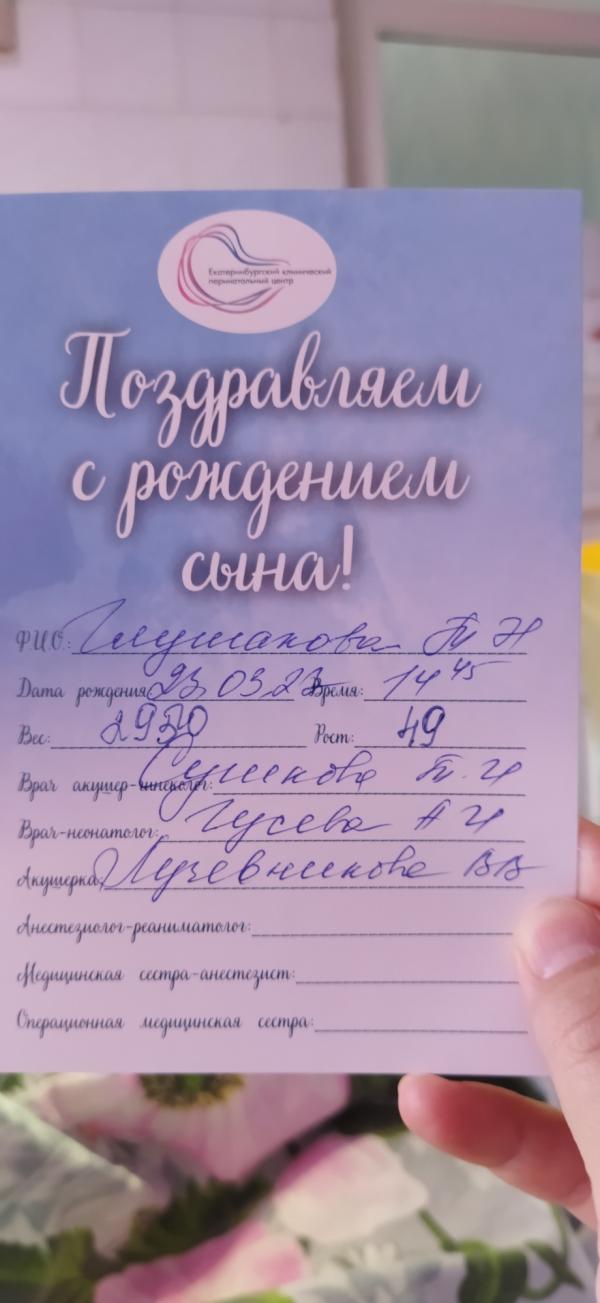 Екатеринбургский клинический
перинатальный центр
Поздравляем
с рождением
сына!
Ф.И.О.: Глушакова Т Н
Дата рождения: 23.03.23 Время: 14 45
Вес: 2970 Рост: 49
Врач акушер-гинеколог: Сушкова Т. И
Врач-неонатолог: Гусева А И
Акушерка: Лучевникова В В
Анестезиолог-реаниматолог:
Медицинская сестра-анестезист:
Операционная медицинская сестра: